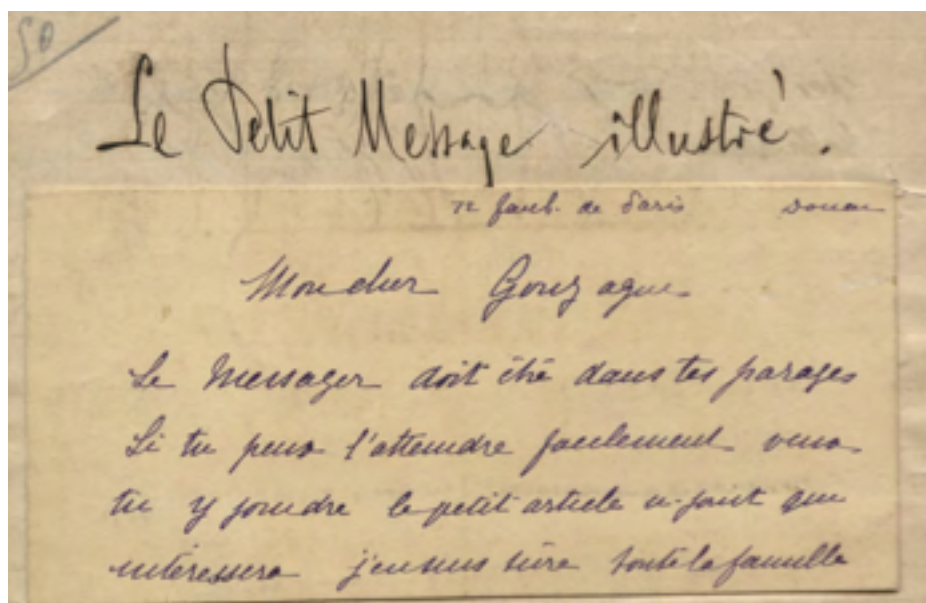 50
Le Petit Message illustré.
72 faub. de Paris Douai
Mon cher Gonzague
Le Messager doit être dans tes parages
Si tu peux l'atteindre facilement veux
tu y joindre le petit article ci-joint que
intéressera j'en suis sûre toute la famille